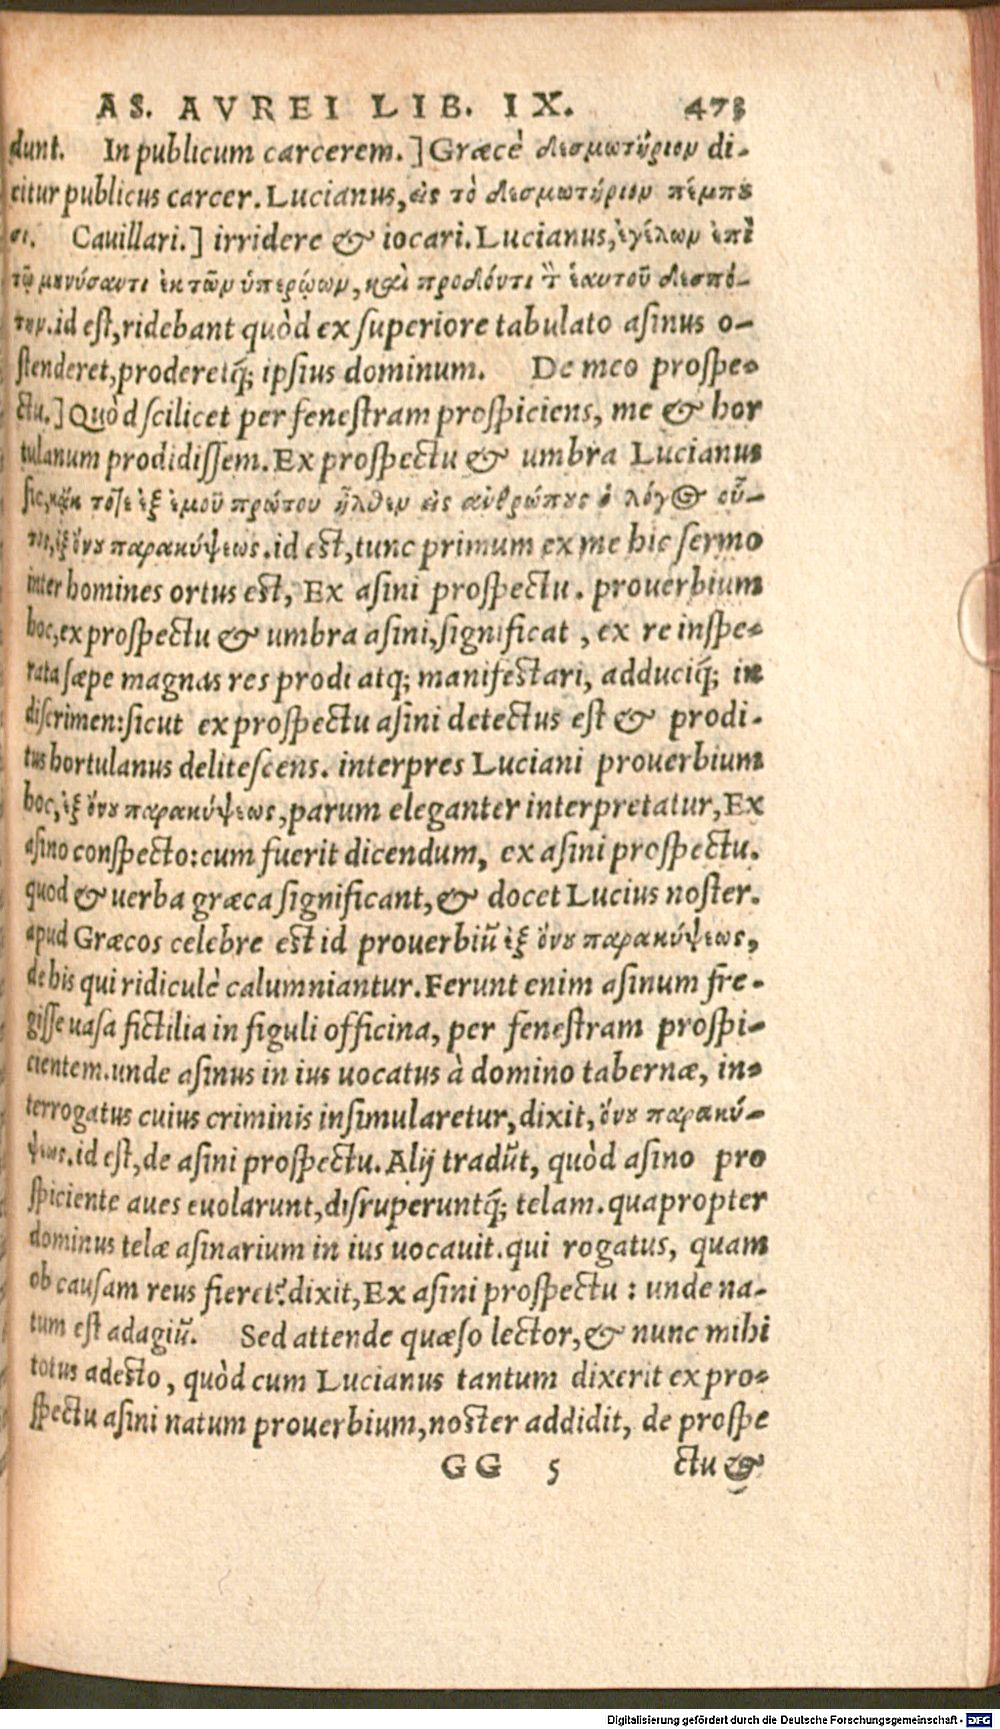 AS. AVREI LIB. IX. 473
dunt. In publicum carcerem. ] Græcè δεσμωτήριον di-
citur publicus carcer. Lucianus, εἰς τὸ δεσμωτήριον πέμπου
σι. Cauillari. ] irridere & iocari. Lucianus, ἐγέλων ἐπὶ
τῷ μηνύσαντι ἐκ τῶν ὑπερῴων, καὶ προδόντι τὸν ἑαυτοῦ δεσπό-
την. id est, ridebant quòd ex superiore tabulato asinus o-
stenderet, proderetq́; ipsius dominum. De meo prospe-
ctu. ] Quòd scilicet per fenestram prospiciens, me & hor
tulanum prodidissem. Ex prospectu & umbra Lucianus
sic, κᾀκ τότε ἐξ ἐμοῦ πρώτου ἦλθεν εἰς ἀνθρώπους ὁ λόγος οὗ-
τος, ἐξ ὄνου παρακύψεως. id est, tunc primum ex me hic sermo
inter homines ortus est, Ex asini prospectu. prouerbium
hoc, ex prospectu & umbra asini, significat , ex re inspe-
rata sæpe magnas res prodi atq; manifestari, adduciq́; in
discrimen: sicut ex prospectu asini detectus est & prodi-
tus hortulanus delitescens. interpres Luciani prouerbium
hoc, ἐξ ὄνου παρακύψεως, parum eleganter interpretatur, Ex
asino conspecto: cum fuerit dicendum, ex asini prospectu.
quod & uerba græca significant, & docet Lucius noster.
apud Græcos celebre est id prouerbiū ἐξ ὄνου παρακύψεως,
de his qui ridiculè calumniantur. Ferunt enim asinum fre-
gisse uasa fictilia in figuli officina, per fenestram prospi-
cientem. unde asinus in ius uocatus à domino tabernæ, in-
terrogatus cuius criminis insimularetur, dixit, ὄνου παρακύ-
ψεως. id est, de asini prospectu. Alij tradūt, quòd asino pro
spiciente aues euolarunt, disruperuntq́; telam. quapropter
dominus telæ asinarium in ius uocauit. qui rogatus, quam
ob causam reus fieret? dixit, Ex asini prospectu : unde na-
tum est adagiū. Sed attende quæso lector, & nunc mihi
totus adesto , quòd cum Lucianus tantum dixerit ex pro-
spectu asini natum prouerbium, noster addidit, de prospe
GG 5 ctu &
Digitalisierung gefördert durch die Deutsche Forschungsgemeinschaft - DFG